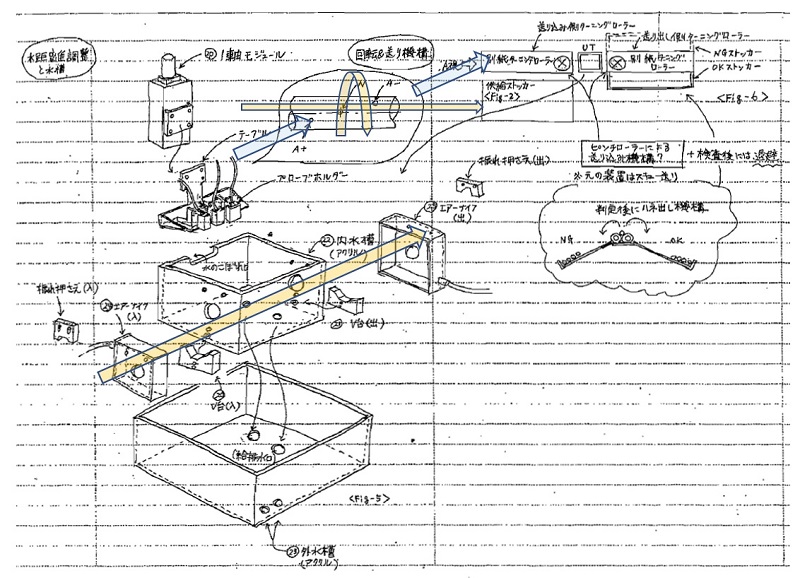 水距離調整
と水槽
⑳ 1軸モジュール
テーブル
プローブホルダー
回転&送り機構
A-
A+
送り込み側ターニングローラー
別紙ターニングローラー
供給ストッカー
<Fig-2>
UT
送り出し側ターニングローラー
別紙ターニングローラー
NGストッカー
OKストッカー
<Fig-6>
ピンチローラーによる
送り込み機構?
※元の装置はスキュー送り
検査後には退避
判定後にハネ出し機構
NG
OK
振れ押さえ(出)
エアーナイフ
(出)
㉒内水槽
(アクリル)
水のこぼれ口
振れ押さえ(入)
エアーナイフ
(入)
V台(出)
V台(入)
(給排水口)
<Fig-5>
外水槽
(アクリル)